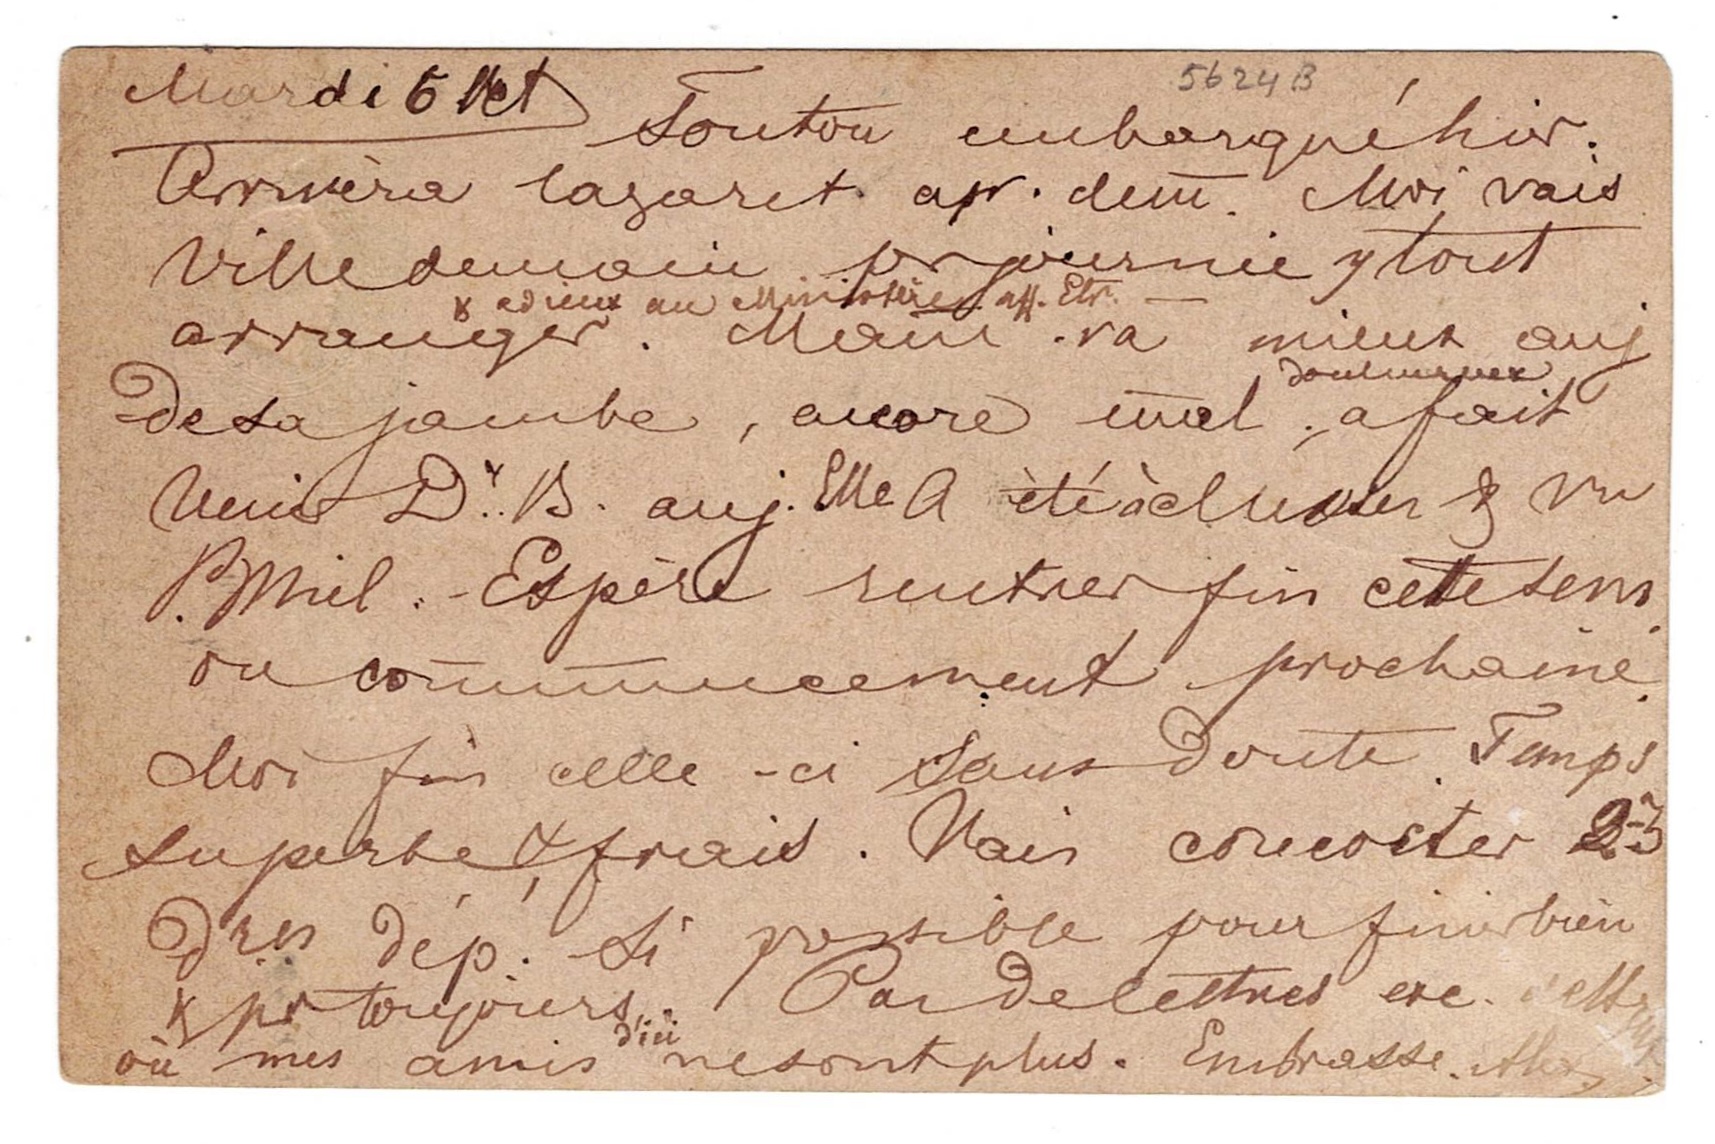 5624B
Mardi 6 Oct Toutou embarqué hier.
Arrivera lazaret apr. dem. Moi vais
Ville demain pr journée y tout
& adieux au Ministère aff. Etr. —
arranger. Mam va mieux auj
douloureux
de sa jambe, encore mal, a fait
venir Dr. B. auj. Elle A été à & vu
P. Mil. - Espère rentrer fin cette sem.
ou commencement prochaine.
Moi fin celle-ci sans doute. Temps
superbe & frais. Vais 2-3
dres dép. si possible pour finir bien
& pr toujours. Pas de lettres
d'ici
où mes amis ne sont plus. Embrasse.